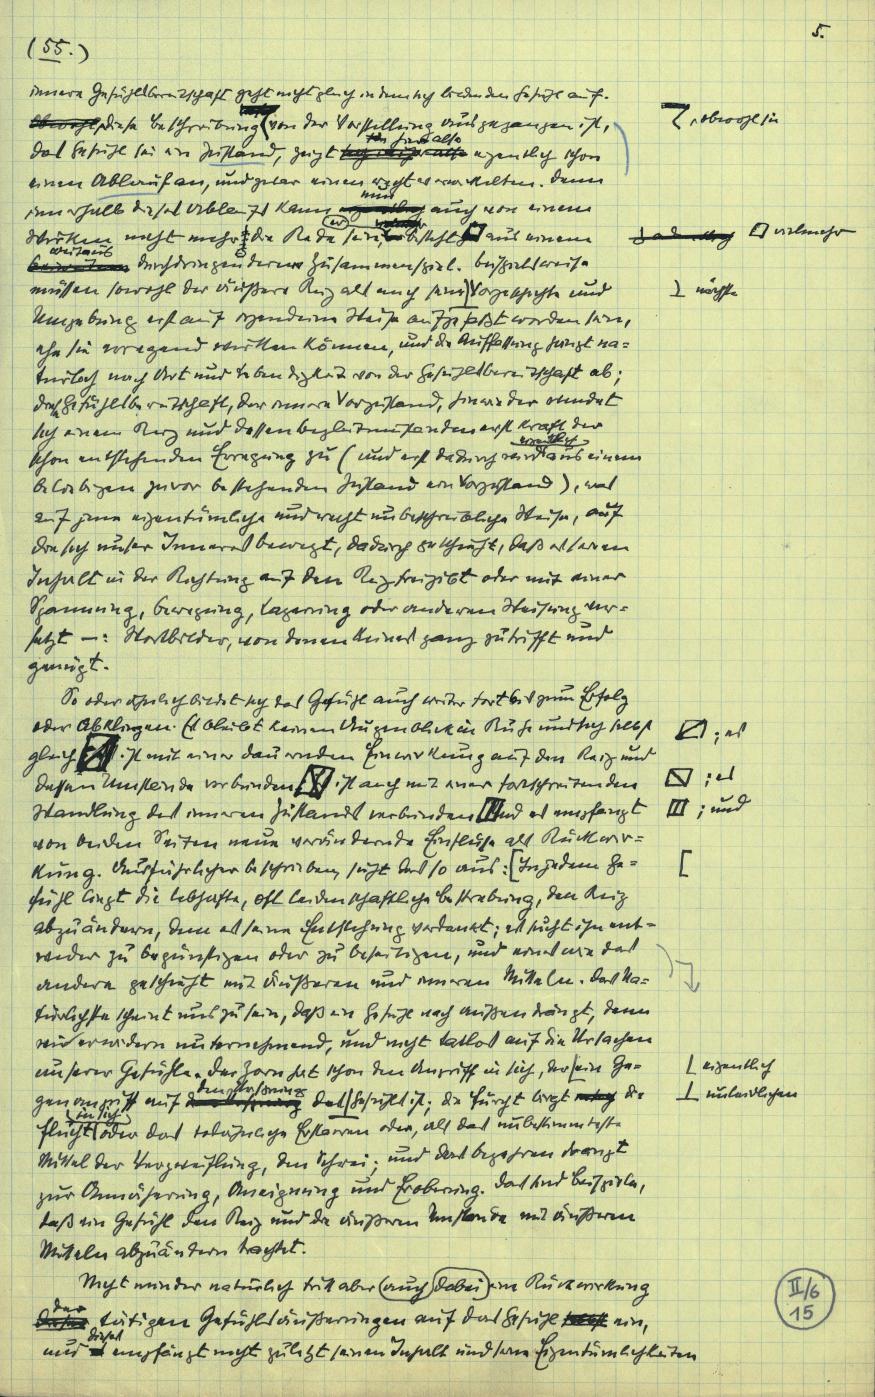 5.
(55.)
innere Gefühlsbereitschaft geht nicht gleich in dem sich bildenden Gefühl auf.
diese Beschreibung von der Vorstellung ausgegangen ist, ⎤, obwohl sie
das Gefühl sei ein Zustand, zeigt sie eigentlich schon
einen Ablauf an, und zwar einen recht verwickelten. Denn
innerhalb dieses Ablaufs kann nun auch von einem
Wirken nicht mehr die Rede sein, er besteht aus einem vielmehr
weitaus durchdringenderen Zusammenspiel. Beispielsweise
müssen sowohl der äußere Reiz als auch seine Vorgeschichte und nächste
Umgebung erst auf irgendeine Weise aufgefaßt worden sein,
ehe sie erregend wirken können, und die Auffassung hängt na-
türlich nach Art und Lebendigkeit von der Gefühlsbereitschaft ab;
die Gefühlsbereitschaft, der innere Vorzustand, hinwieder wendet
sich einem Reiz und dessen Begleitumständen erst kraft der
schon entstehenden Erregung zu (und erst dadurch wird eigentlich aus einem
beliebigen zuvor bestehenden Zustand ein Vorzustand), was
auf jene eigentümliche und recht unbeschreibliche Weise, auf
die sich unser Inneres bewegt, dadurch geschieht, daß es seinen
Inhalt in der Richtung auf den Reiz freigibt oder mit einer
Spannung, Bewegung, Lagerung oder anderen Weisung ver-
setzt —: Wortbilder, von denen keines ganz zutrifft und
genügt.
So oder ähnlich bildet sich das Gefühl auch weiter fort bis zum Erfolg
oder Abklingen. Es bleibt keinen Augenblick in Ruhe und sich selbst ; es
gleich ist mit einer dauernden Einwirkung auf den Reiz und
dessen Umstände verbunden ist auch mit einer fortschreitenden ; es
Wandlung des inneren Zustands verbunden und es empfängt ; und
von beiden Seiten neue verändernde Einflüsse als Rückwir-
kung. Ausführlicher beschrieben, sieht das so aus: [In jedem Ge- [
fühl liegt die lebhafte, oft leidenschaftliche Bestrebung, den Reiz
abzuändern, dem es seine Entstehung verdankt; es sucht ihn ent-
weder zu begünstigen oder zu beseitigen, und eines wie das
andere geschieht mit äußeren und inneren Mitteln. Das Na-
türlichste scheint uns zu sein, daß ein Gefühl nach außen drängt, denn
wir erwidern unternehmend, und nicht tatlos auf die Ursachen
unserer Gefühle. Der Zorn hat schon den Angriff in sich, der ein Ge- eigentlich
genangriff auf den Ursprung des Gefühls ist; die Furcht birgt die unleidlichen
Flucht in sich oder das todähnliche Erstarren oder, als das unbestimmteste
Mittel der Verzweiflung, den Schrei; und das Begehren drängt
zur Annäherung, Aneignung und Eroberung. Das sind Beispiele,
daß ein Gefühl den Reiz und die äußeren Umstände mit äußeren
Mitteln abzuändern trachtet.
Nicht minder natürlich tritt aber (auch) (dabei) eine Rückwirkung
der tätigen Gefühlsäußerungen auf das Gefühl ein,
und dieses empfängt nicht zuletzt seinen Inhalt und seine Eigentümlichkeiten
II/6
15